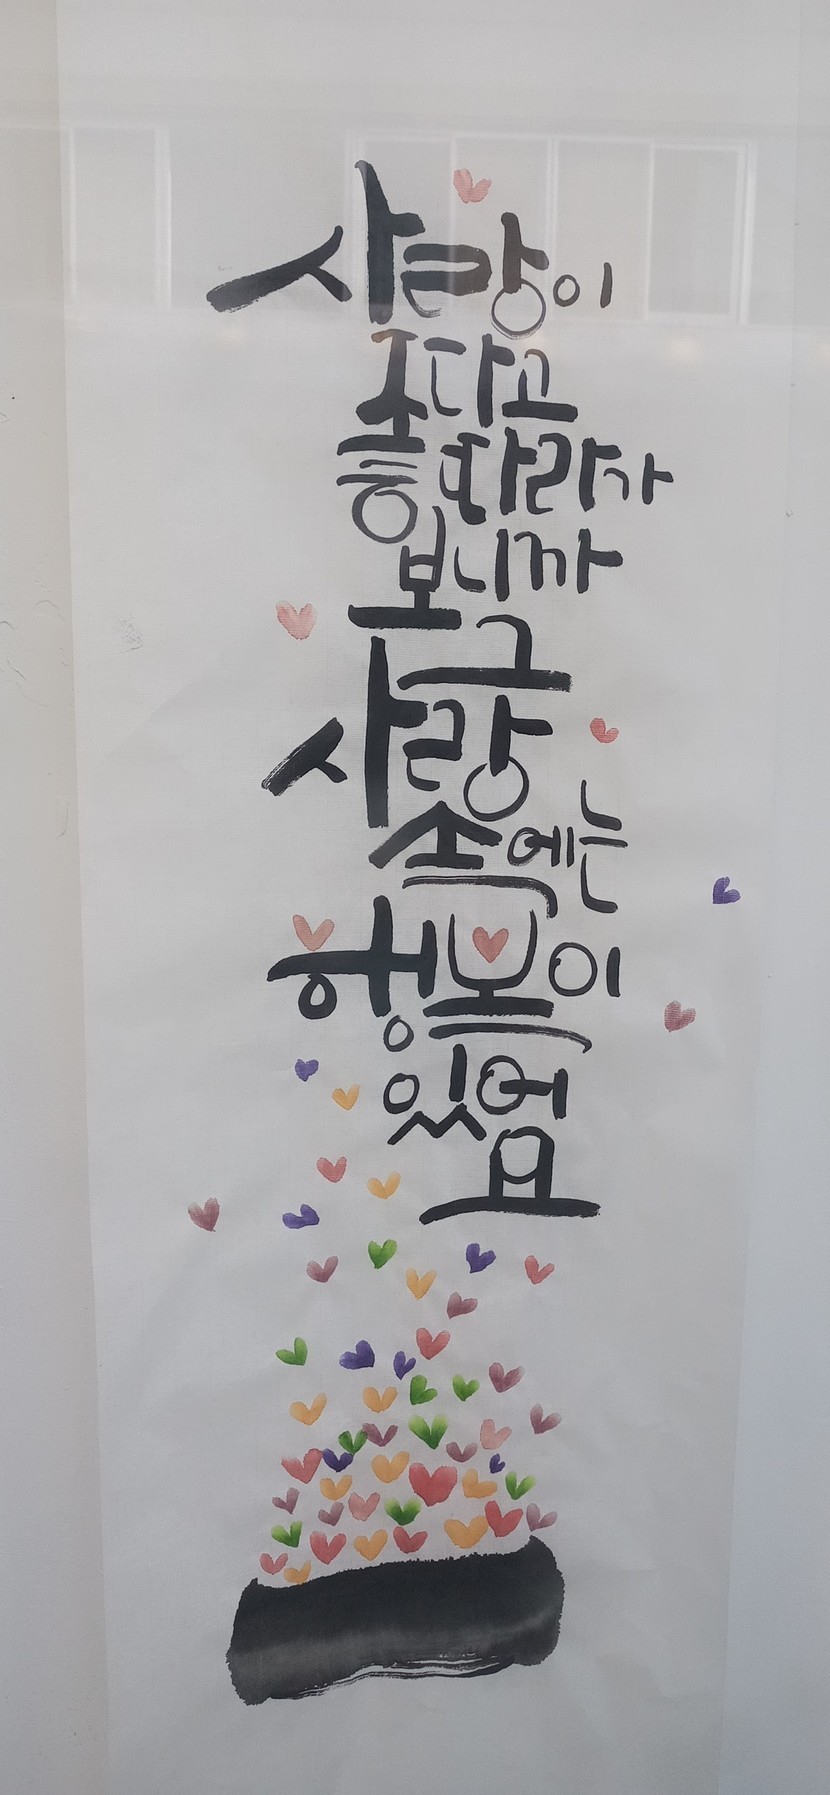 사랑이
좋다고
따라가
보니까
그
사랑
속에는
행복이
있어
요